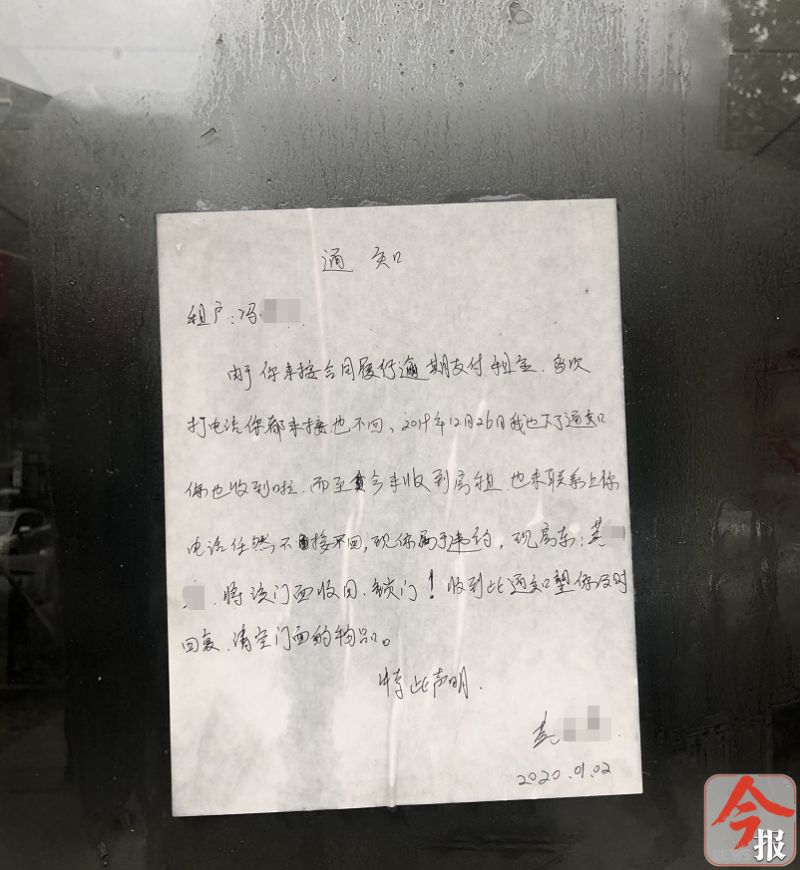 通知
租户:冯
由于你未按合同履行逾期支付租金、多次
打电话你都未接也不回、2019年12月26日我也下了通知
你也收到啦、而至今未收到房租 也未联系上你
电话任然不接不回,现你属于违约,现房东:黄
、将该门面收回、锁门!收到此通知望你及时
回复、清空门面的物品。
特此声明.
黄
2020.01.02
今报